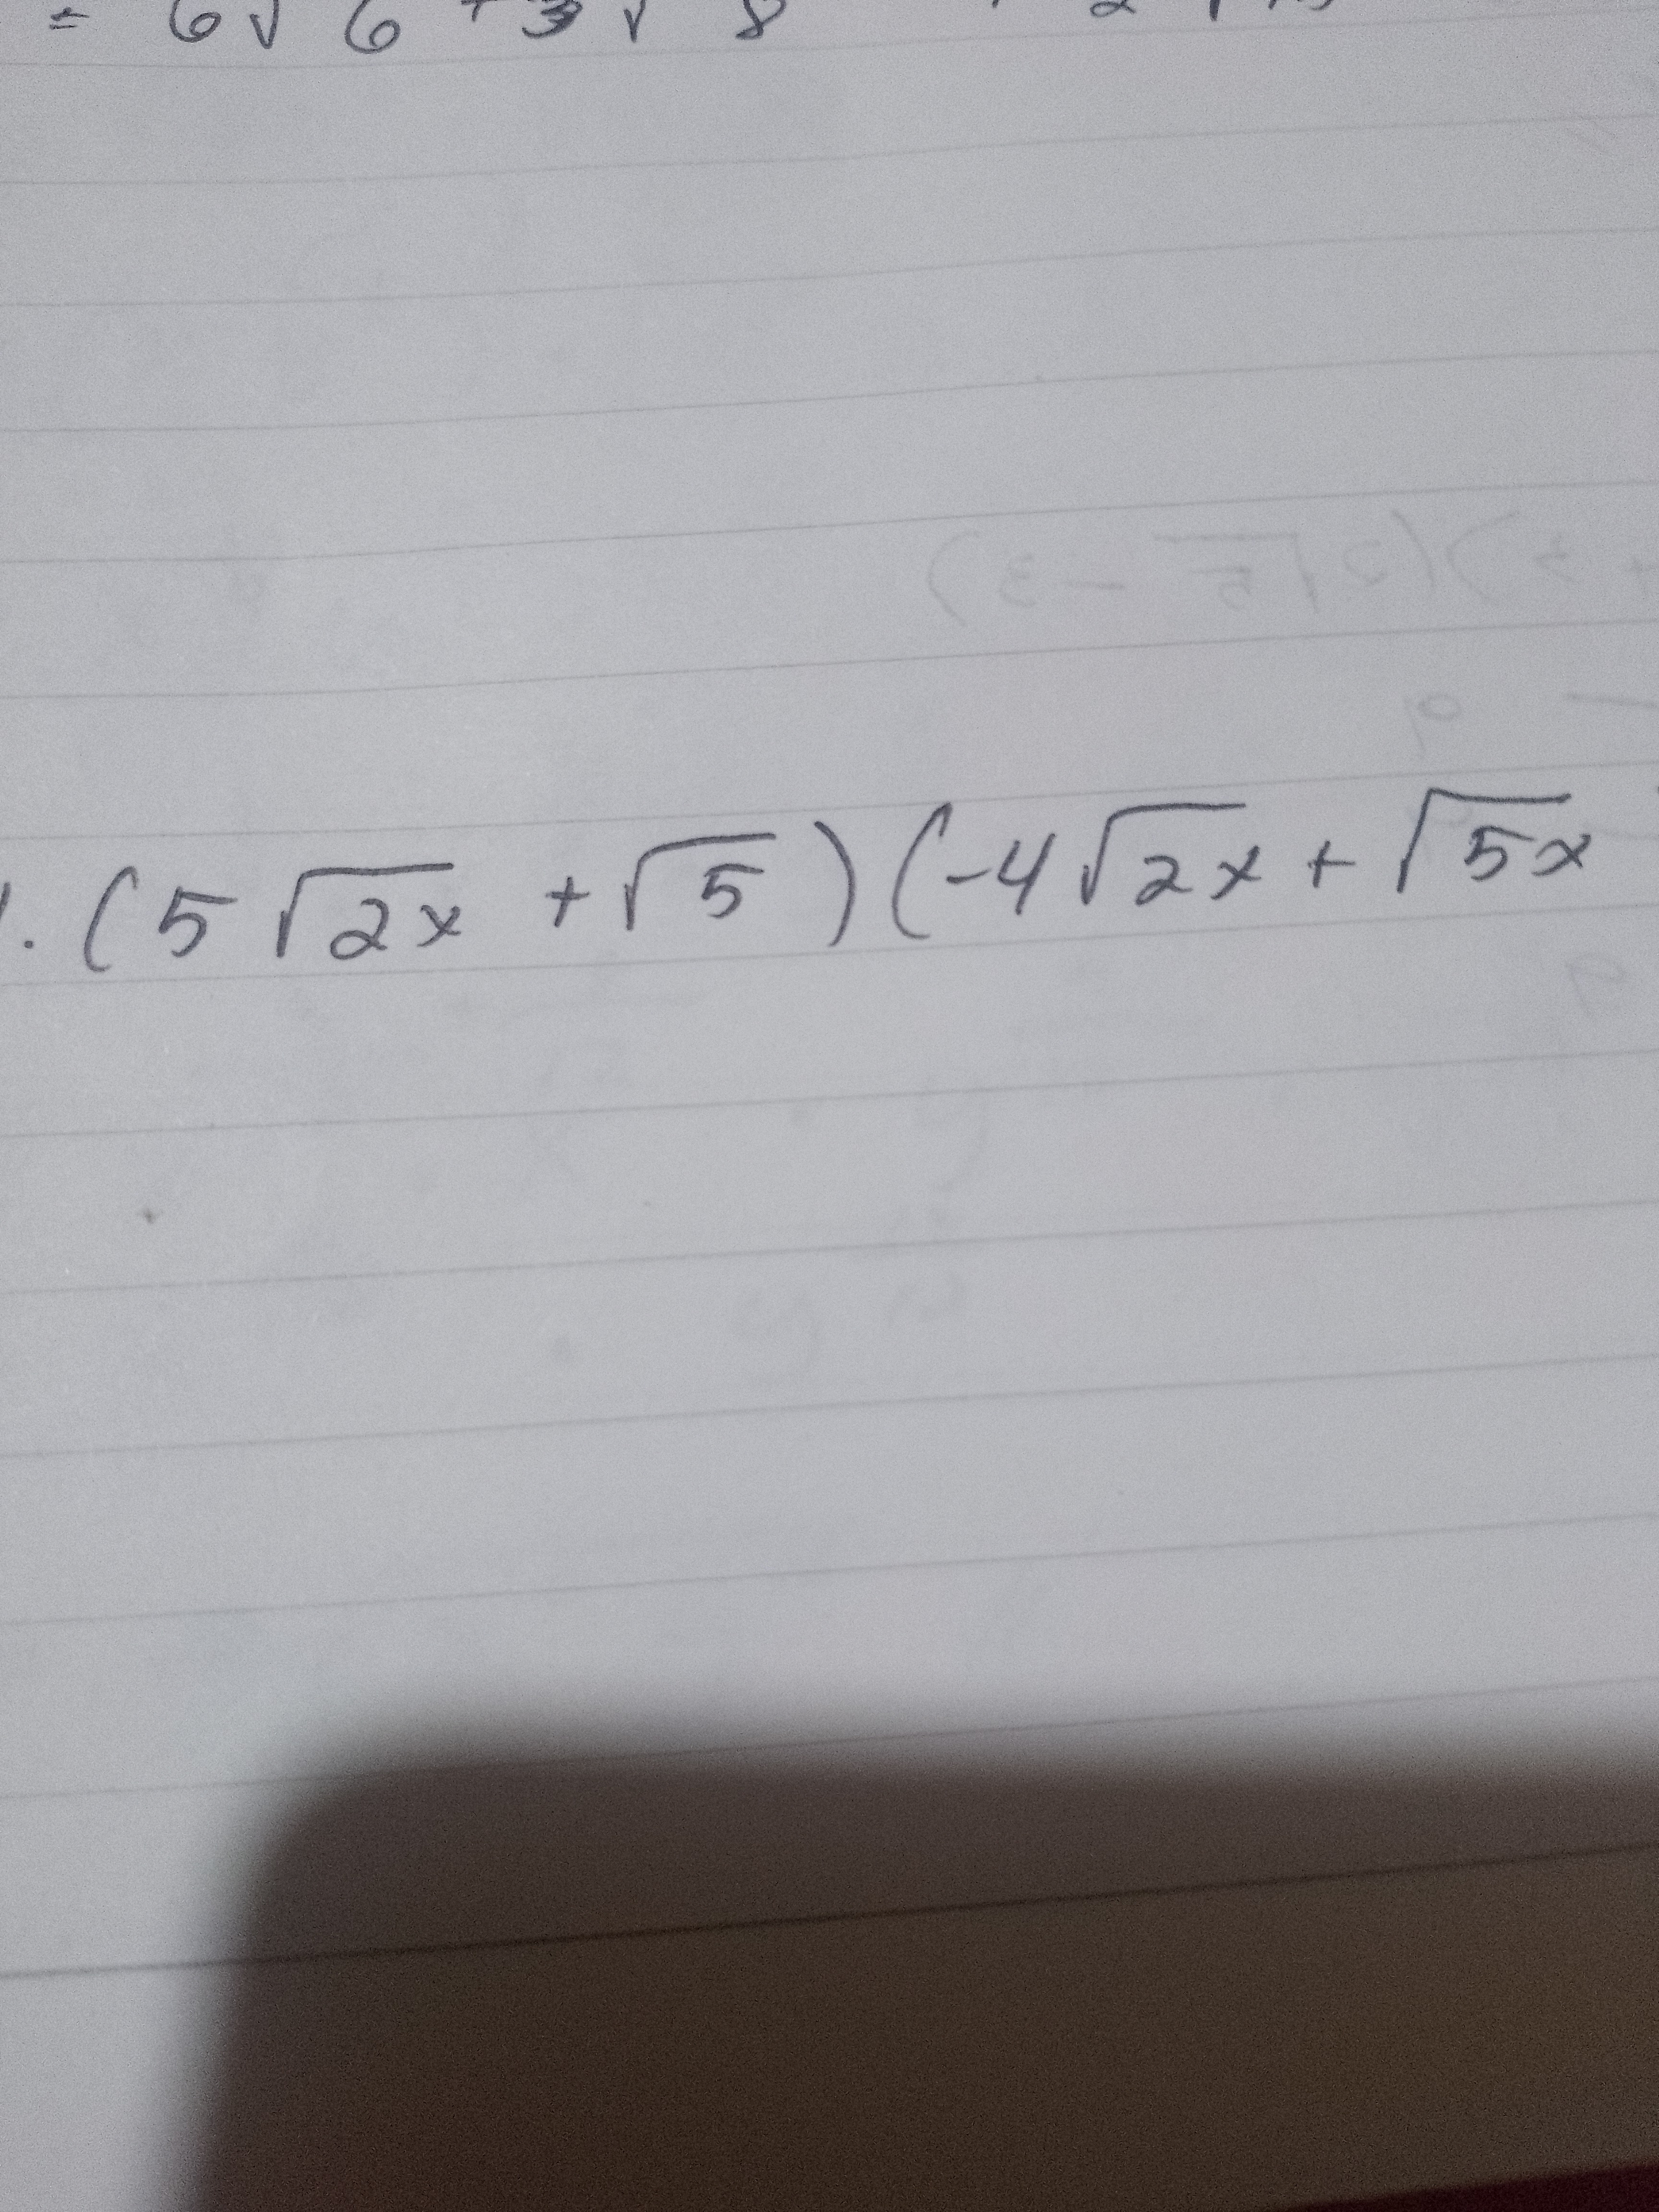 = 6√6 + 3√8
. (5√2x + √5)(-4√2x + √5x